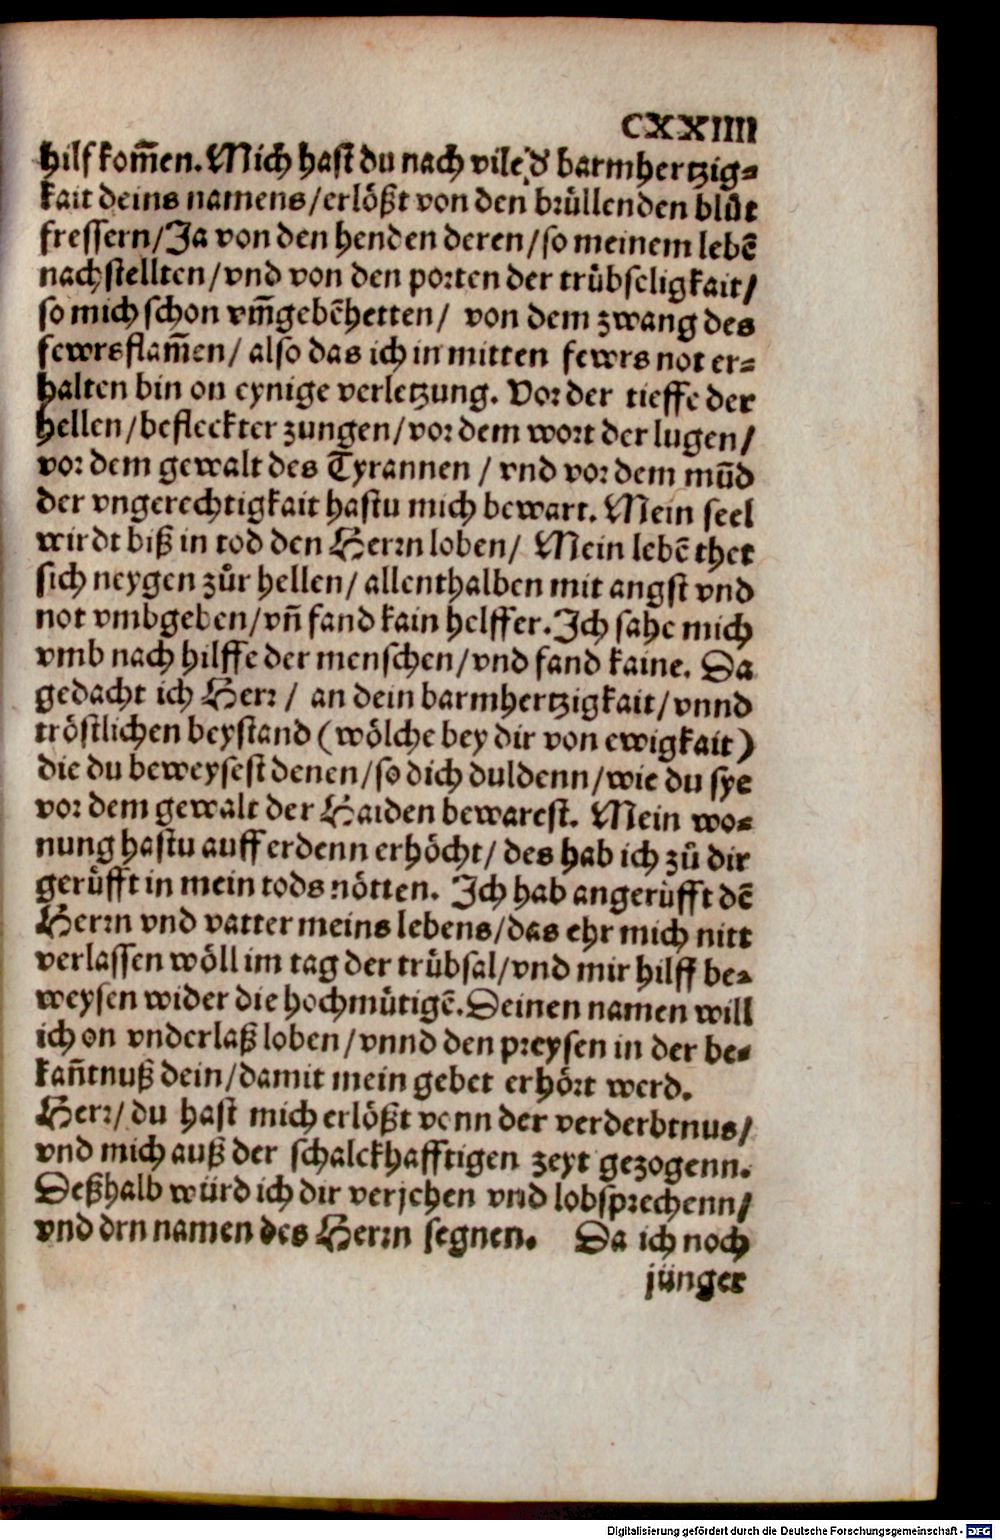 CXXIIII
hilf kom̃en. Mich hast du nach vile d' barmhertzig⸗
kait deins namens/erlößt von den brüllenden blůt
fressern/Ja von den henden deren/so meinem lebẽ
nachstellten/vnd von den porten der trůbseligkait/
so mich schon vm̃gebẽhetten/ von dem zwang des
fewrsflam̃en/ also das ich in mitten fewrs not er⸗
halten bin on eynige verletzung. Vor der tieffe der
hellen/befleckter zungen/vor dem wort der lugen/
vor dem gewalt des Tyrannen / vnd vor dem mũd
der vngerechtigkait hastu mich bewart. Mein seel
wirdt biß in tod den Herrn loben/ Mein lebẽ thet
sich neygen zůr hellen/ allenthalben mit angst vnd
not vmbgeben/vñ fand kain helffer. Ich sahe mich
vmb nach hilffe der menschen/vnd fand kaine. Da
gedacht ich Herr / an dein barmhertzigkait/vnnd
tröstlichen beystand (wölche bey dir von ewigkait)
die du beweysest denen/so dich duldenn/wie du sye
vor dem gewalt der Haiden bewarest. Mein wo⸗
nung hastu auff erdenn erhöcht/ des hab ich zů dir
gerůfft in mein tods nötten. Ich hab angerůfft dẽ
Herrn vnd vatter meins lebens/das ehr mich nitt
verlassen wöll im tag der trůbsal/vnd mir hilff be⸗
weysen wider die hochmůtigẽ. Deinen namen will
ich on vnderlaß loben/vnnd den preysen in der be⸗
kañtnuß dein/damit mein gebet erhört werd.
Herr/du hast mich erlößt vonn der verderbtnus/
vnd mich auß der schalckhafftigen zeyt gezogenn.
Deßhalb würd ich dir verjehen vnd lobsprechenn/
vnd drn namen des Herrn segnen. Da ich noch
jünger
Digitalisierung gefördert durch die Deutsche Forschungsgemeinschaft - DFG